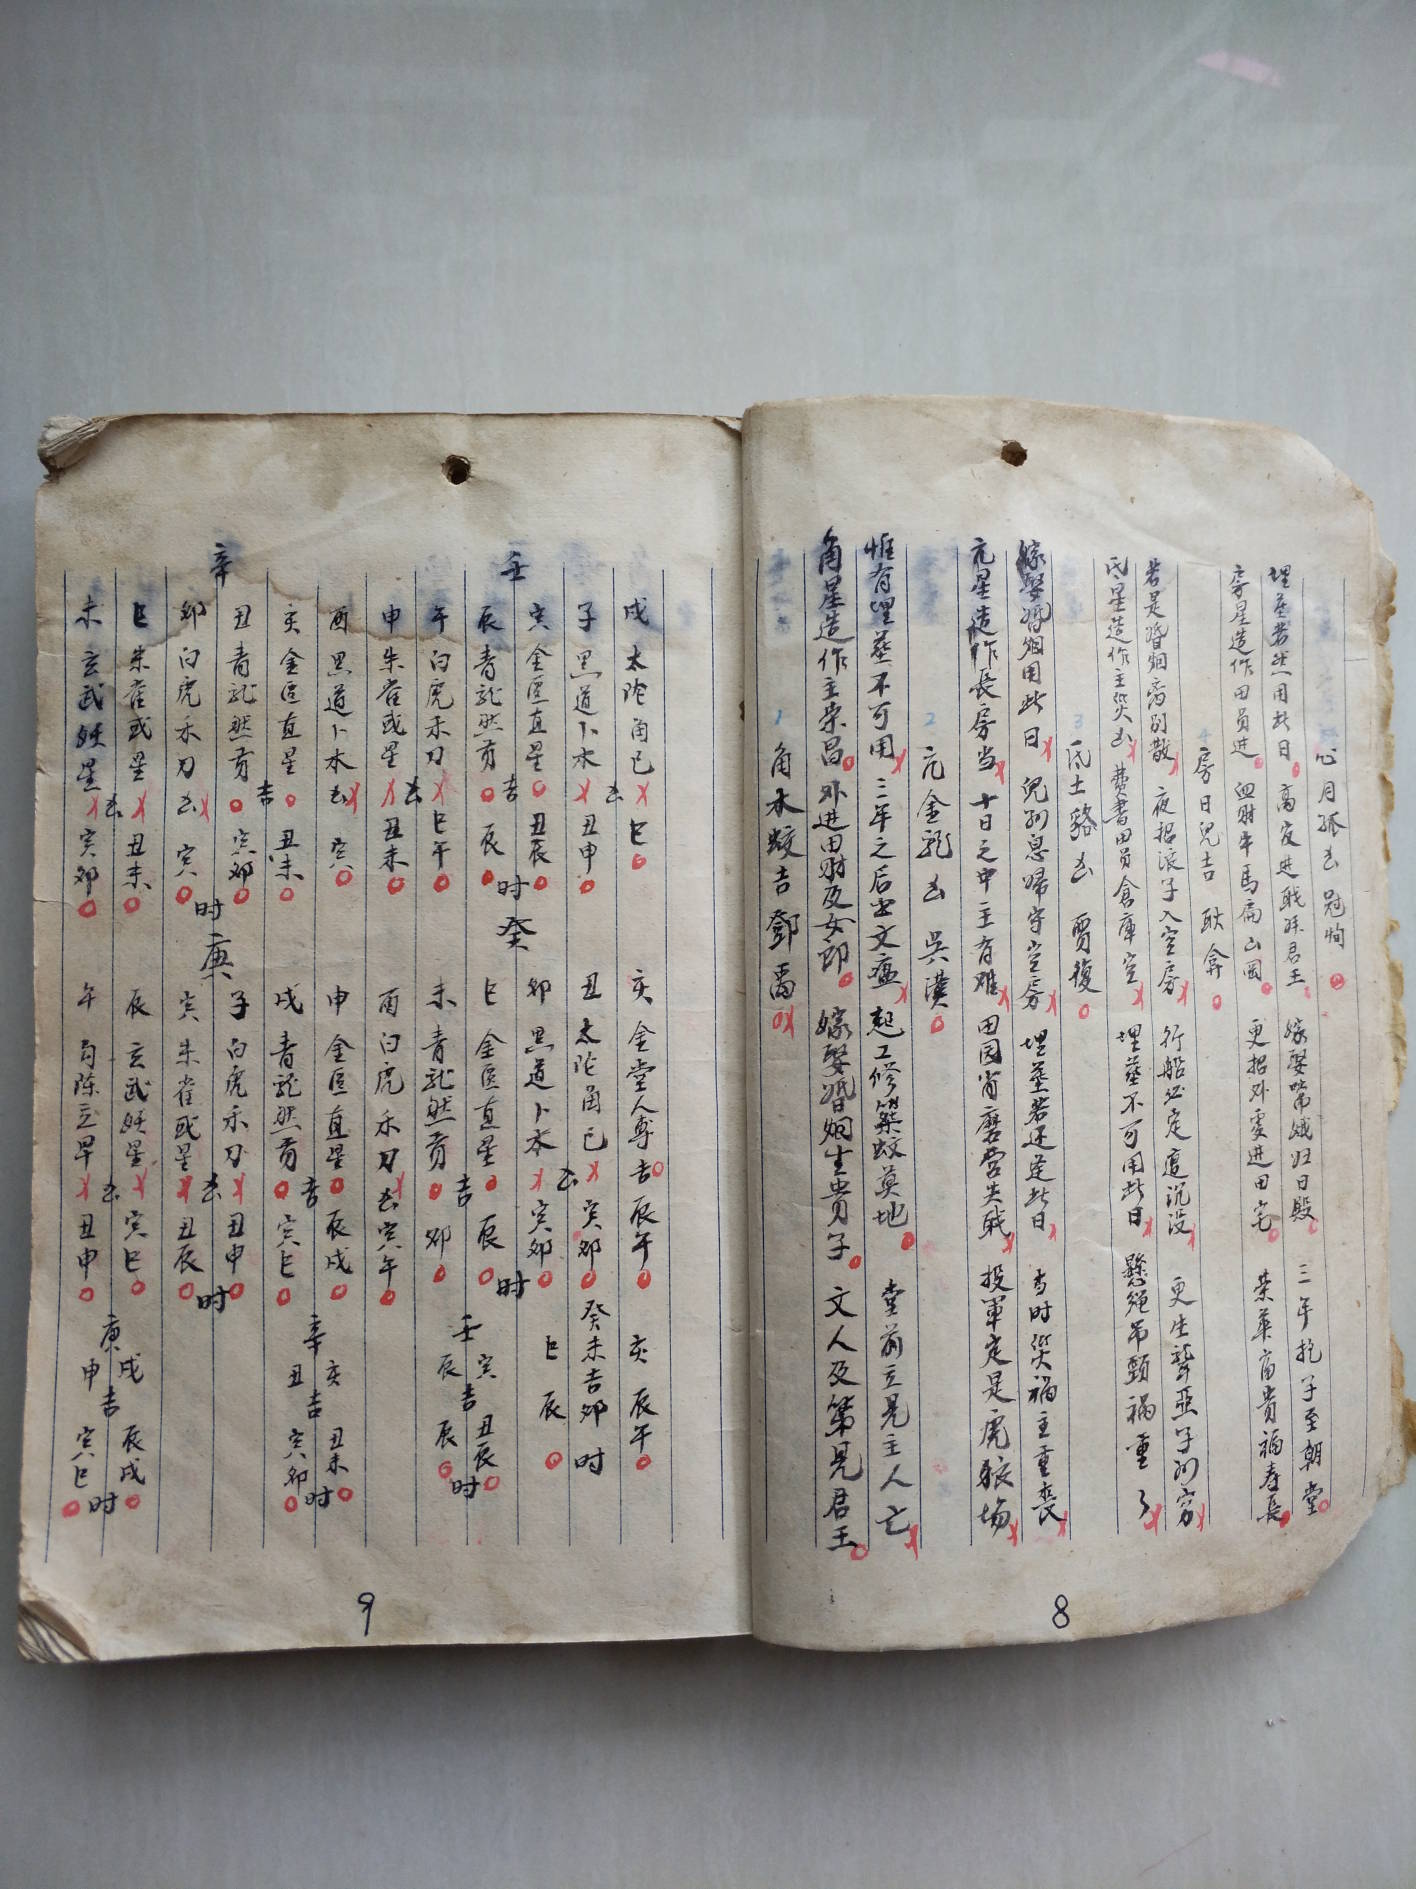 1 角木蛟吉鄧禹
角星造作主榮昌 外進田財及女郎 嫁娶婚姻生貴子 文人及第見君王
惟有埋葬不可用 三年之后主文瘟 起工修築蚊莫地 堂前立見主人亡
2 亢金龍凶 吳漢
亢星造作長房当 十日之中主有难 田园肖磨官失戝 投軍定是虎狼場
嫁娶婚姻用此日 兒孙息婦守空房 埋葬若还逢此日 当时災禍主重喪
3 氐土貉凶 賈復
氐星造作主災凶 費書田員倉庫空 埋葬不可用此日 懸绳吊頸禍重了
若是婚姻离别散 夜招浪子入空房 行船必定遭沉没 更生聾啞子孙穷
4 房日兒吉 耿弇
房星造作田员進 血財牛馬扁山岡 更招外处進田宅 荣華富貴福寿長
埋葬若然用此日 高官進職拜君王 嫁娶常娥归日殿 三年抱子至朝堂
心月狐凶 冠恂
8
戌 太陀角已 巳 亥 金堂人專吉 辰午 亥 辰午
子 黑道卜木 凶 丑申 丑 太陀角已 寅卯 癸未吉卯时
壬 寅 金匡直星 吉 丑辰 时 癸 卯 黑道卜木 凶 寅卯 巳 辰
辰 青龙然貢 辰 巳 金匡直星 辰 时 寅 丑辰
午 白虎禾刀 巳午 未 青龙然貢 吉 卯 壬 辰 吉 辰 时
申 朱雀或星 凶 丑未 酉 白虎禾刀 凶 寅午
酉 黑道卜木 凶 寅 申 金匡直星 辰戌 亥 丑未
亥 金匡直星 丑未 戌 青龙然貢 吉 寅巳 辛 丑 吉 寅卯 时
辛 丑 青龙然貢 吉 寅卯 子 白虎禾刀 丑申
卯 白虎禾刀 凶 寅 时 庚 寅 朱雀或星 凶 丑辰 时
巳 朱雀或星 丑未 辰 玄武妖星 寅巳 戌 辰戌
未 玄武妖星 凶 寅卯 午 勾陈立早 凶 丑申 庚 申 吉 寅巳 时
9